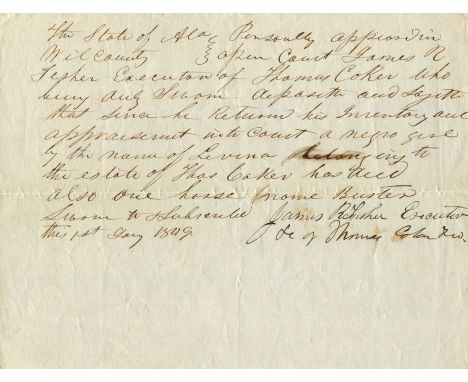 The State of Ala Personally appeared in
Wil County } open Court James R
Fisher Executor of Thomas Coker who
being duly Sworn deposeth and Sayeth
that since he Returned his Inventory and
appraisement into Court a negro girl
by the name of Levina belonging to
the estate of Thos Coker has died
also one horse name Buster
Sworn to & Subscribed James R Fisher Executor
this 1st Day 1849 &c of Thomas Coker